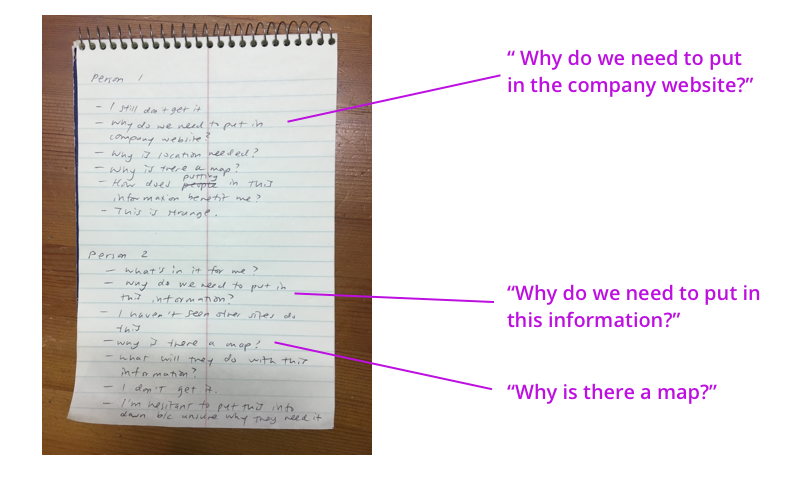 Person 1
- I still don't get it
- Why do we need to put in
company website?
- Why is location needed?
- Why is there a map?
putting
- How does people in this
information benefit me?
- This is strange.
Person 2
- What's in it for me?
- Why do we need to put in
this information?
- I haven't seen other sites do
this
- Why is there a map?
- What will they do with this
information?
- I don't get it.
- I'm hesitant to put this info
down b/c unsure why they need it
“ Why do we need to put
in the company website?”
“Why do we need to put in
this information?”
“Why is there a map?”